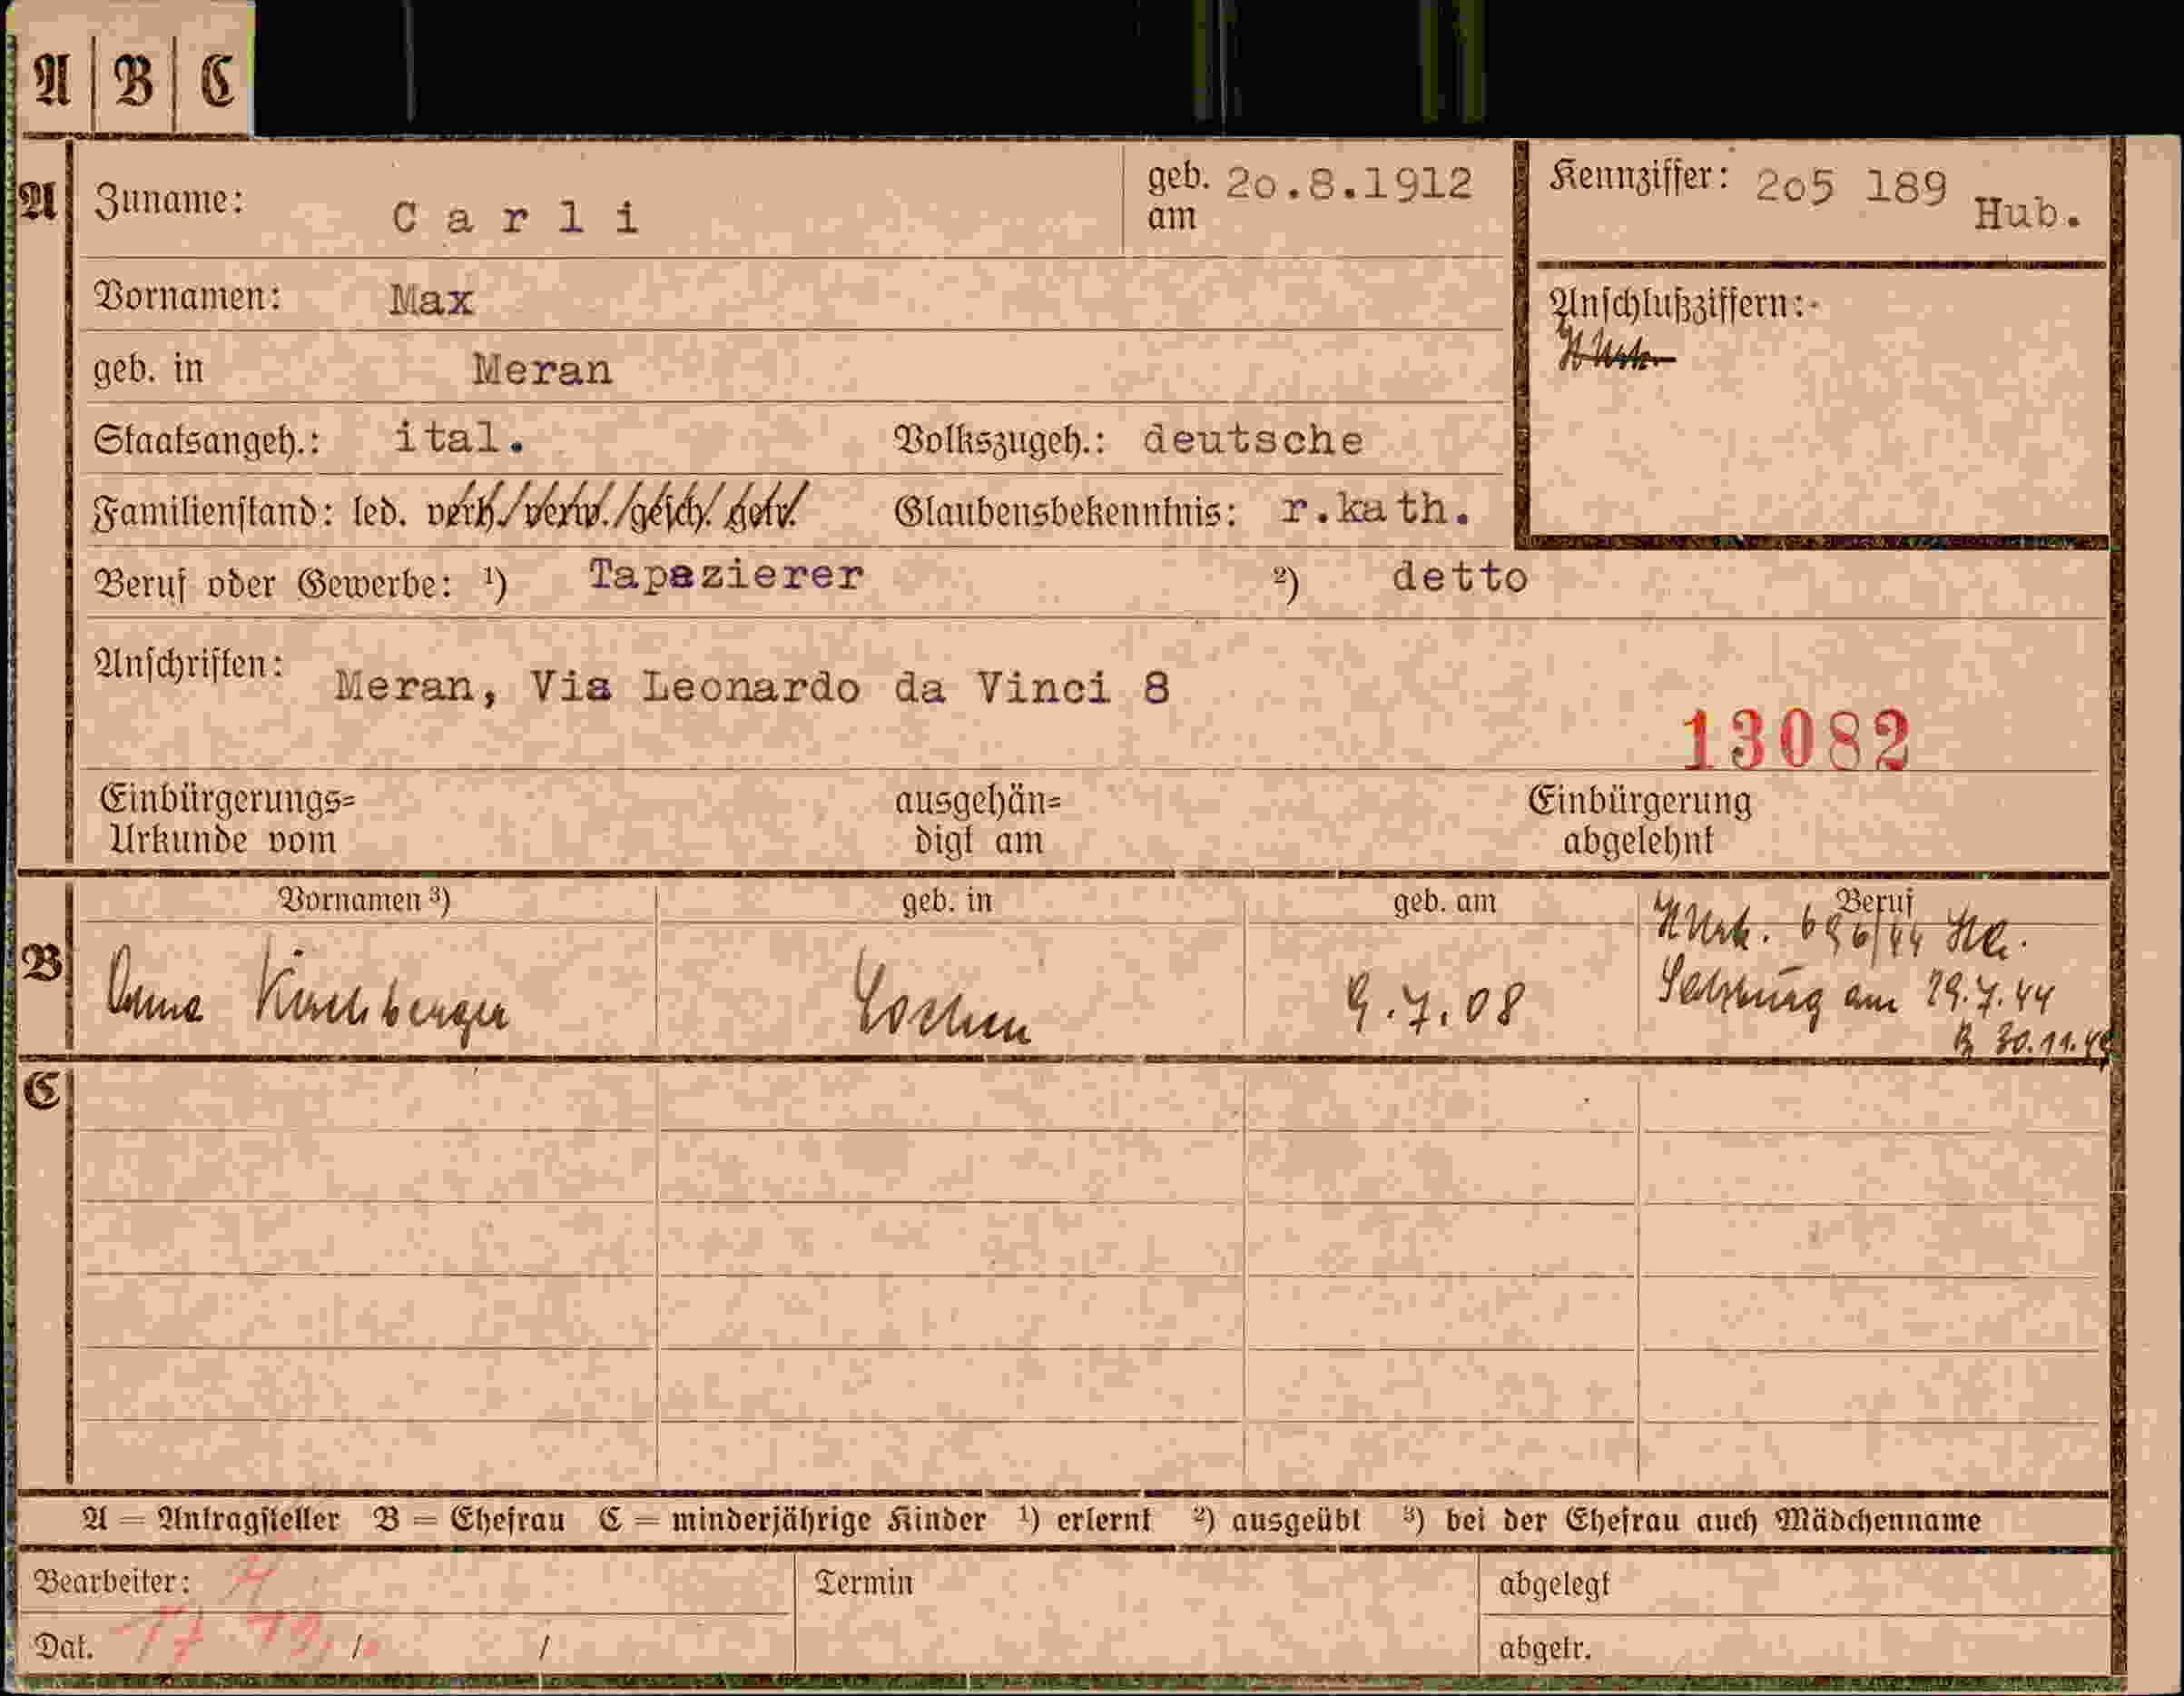 A | B | C
A Zuname: Carli geb. am 20.8.1912 Kennziffer: 205 189 Hub.
Vornamen: Max Anschlußziffern:
geb. in Meran
Staatsangeh.: ital. Volkszugeh.: deutsche
Familienstand: led. verh./verw./gesch./getr. Glaubensbekenntnis: r.kath.
Beruf oder Gewerbe: ¹) Tapazierer ²) detto
Anschriften: Meran, Via Leonardo da Vinci 8
13082
Einbürgerungs= ausgehän= Einbürgerung
Urkunde vom digt am abgelehnt
Vornamen ³) geb. in geb. am Beruf
B Anna Kirchberger Lochen 9.7.08 696/44
Salzburg am 29.7.44
30.11.44
C
A = Antragsteller B = Ehefrau C = minderjährige Kinder ¹) erlernt ²) ausgeübt ³) bei der Ehefrau auch Mädchenname
Bearbeiter: Termin abgelegt
Dat. / / abgetr.